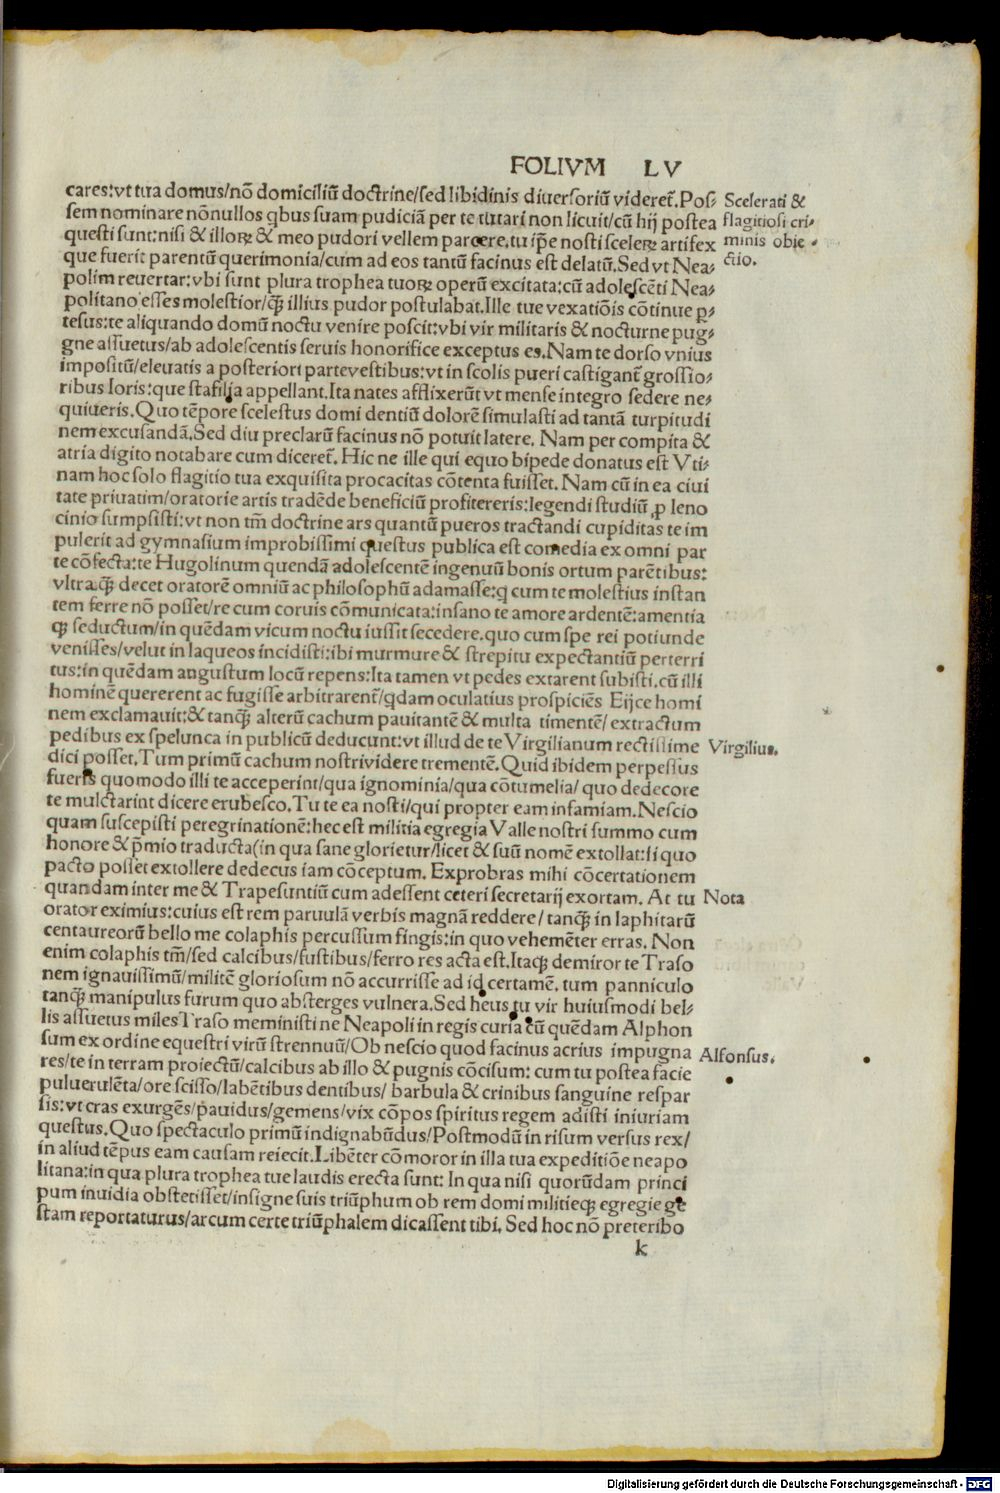 FOLIVM LV
cares:vt tua domus/nō domiciliū doctrine/sed libidinis diuersoriū videret̄. Pos⸗
sem nominare nōnullos qbus suam pudiciā per te tutari non licuit/cū hij postea
questi sunt:nisi & illoꝝ & meo pudori vellem parcere.tu ip̄e nosti sceleꝝ artifex
que fuerit parentū querimonia/cum ad eos tantū facinus est delatū.Sed vt Nea⸗
polim reuertar:vbi sunt plura trophea tuoꝝ operū excitata:cū adolescēti Nea⸗
politano esses molestior/q̄ꝫ illius pudor postulabat.Ille tue vexatiōis cōtinue p⸗
tesus:te aliquando domū noctu venire poscit:vbi vir militaris & nocturne pug⸗
gne assuetus/ab adolescentis seruis honorifice exceptus es.Nam te dorso vnius
impositū/eleuatis a posteriori parte vestibus:vt in scolis pueri castigant̄ grossio⸗
ribus loris:que stafilia appellant.Ita nates afflixerūt vt mense integro sedere ne⸗
quiueris.Quo tēpore scelestus domi dentiū dolorē simulasti ad tantā turpitudi
nem excusandā.Sed diu preclarū facinus nō potuit latere. Nam per compita &
atria digito notabare cum diceret̄. Hic ne ille qui equo bipede donatus est Vti⸗
nam hoc solo flagitio tua exquisita procacitas cōtenta fuisset. Nam cū in ea ciui
tate priuatim/oratorie artis tradēde beneficiū profitereris:legendi studiū ꝓ leno
cinio sumpsisti:vt non tm̄ doctrine ars quantū pueros tractandi cupiditas te im
pulerit ad gymnasium improbissimi questus publica est comedia ex omni par
te cōfecta:te Hugolinum quendā adolescentē ingenuū bonis ortum parētibus:
vltra q̄ꝫ decet oratorē omniū ac philosophū adamasse:q cum te molestius instan
tem ferre nō posset/re cum coruis cōmunicata:insano te amore ardentē:amentia
qꝫ seductum/in quēdam vicum noctu iussit secedere.quo cum spe rei potiunde
venisses/velut in laqueos incidisti:ibi murmure & strepitu expectantiū perterri
tus:in quēdam angustum locū repens:Ita tamen vt pedes extarent subisti.cū illi
hominē quererent ac fugisse arbitrarent̄/qdam oculatius prospiciēs Eijce homi
nem exclamauit:& tanq̄ꝫ alterū cachum pauitantē & multa timentē/ extractum
pedibus ex spelunca in publicū deducunt:vt illud de te Virgilianum rectissime
dici posset.Tum primū cachum nostri videre trementē.Quid ibidem perpessus
fueris quomodo illi te acceperint/qua ignominia/qua cōtumelia/ quo dedecore
te mulctarint dicere erubesco.Tu te ea nosti/qui propter eam infamiam.Nescio
quam suscepisti peregrinationē:hec est militia egregia Valle nostri summo cum
honore & p̄mio traducta(in qua sane glorietur/licet & suū nomē extollat:si quo
pacto posset extollere dedecus iam cōceptum. Exprobras mihi cōcertationem
quandam inter me & Trapesuntiū cum adessent ceteri secretarij exortam. At tu
orator eximius:cuius est rem paruulā verbis magnā reddere/ tanq̄ꝫ in laphitarū
centaureorū bello me colaphis percussum fingis:in quo vehemēter erras. Non
enim colaphis tm̄/sed calcibus/fustibus/ferro res acta est.Itaqꝫ demiror te Traso
nem ignauissimū/militē gloriosum nō accurrisse ad id certamē. tum panniculo
tanq̄ꝫ manipulus furum quo absterges vulnera.Sed heus tu vir huiusmodi bel⸗
lis assuetus miles Traso meministi ne Neapoli in regis curia cū quēdam Alphon
sum ex ordine equestri virū strennuū/Ob nescio quod facinus acrius impugna
res/te in terram proiectū/calcibus ab illo & pugnis cōcisum: cum tu postea facie
puluerulēta/ore scisso/labētibus dentibus/ barbula & crinibus sanguine respar
sis:vt cras exurgēs/pauidus/gemens/vix cōpos spiritus regem adisti iniuriam
questus.Quo spectaculo primū indignabūdus/Postmodū in risum versus rex/
in aliud tēpus eam causam reiecit.Libēter cōmoror in illa tua expeditiōe neapo
litana:in qua plura trophea tue laudis erecta sunt: In qua nisi quorūdam princi
pum inuidia obstetisset/insigne suis triūphum ob rem domi militieqꝫ egregie ge
stam reportaturus/arcum certe triūphalem dicassent tibi. Sed hoc nō preteribo
k
Scelerati &
flagitiosi cri⸗
minis obie⸗
ctio.
Virgilius.
Nota
Alfonsus.
Digitalisierung gefördert durch die Deutsche Forschungsgemeinschaft - DFG